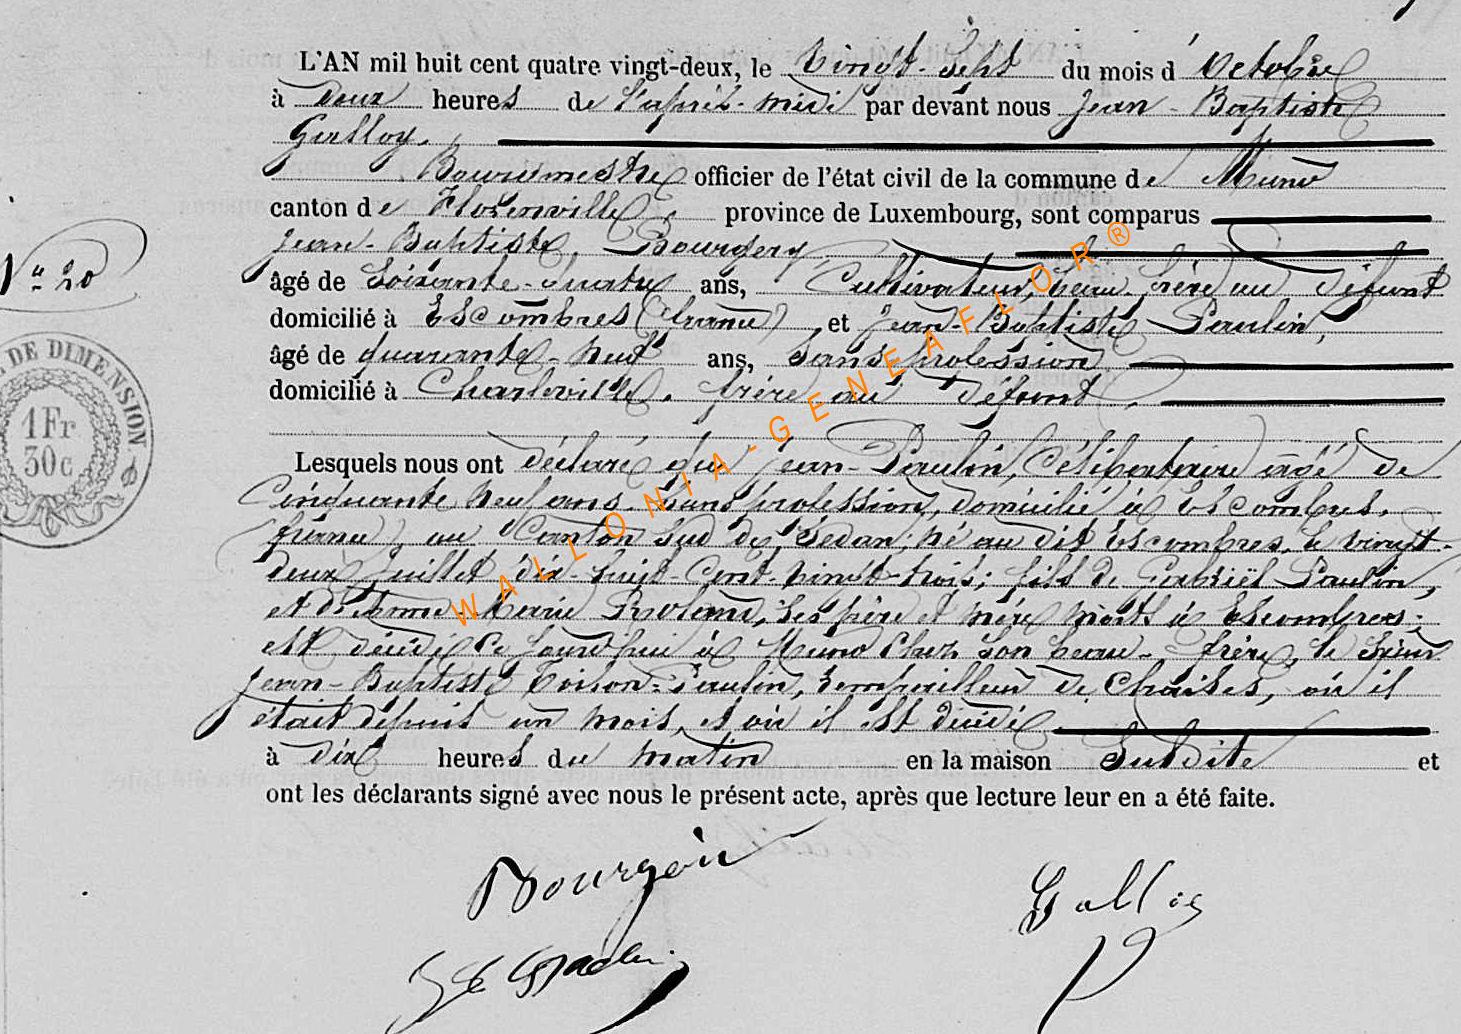 L'AN mil huit cent quatre vingt-deux, le Vingt-Sept du mois d' Octobre
à Deux heures de l'après-midi par devant nous Jean-Baptiste
Galloy.
Bourgmestre officier de l'état civil de la commune de Muno
canton de Florenville, province de Luxembourg, sont comparus
Jean-Baptiste,
N° 20
âgé de Soixante-quatre ans, Cultivateur, beau-frère au défunt
domicilié à Escombres (france) et Jean-Baptiste Paulin,
âgé de quarante-neuf ans, Sans profession
domicilié à Charleville, frère au défunt.
DE DIMENSION
1 Fr
30 c
Lesquels nous ont déclaré que Jean-Paulin, Célibataire âgé de
Cinquante neuf ans, Sans profession, domicilié à Escombres,
france, au Canton Sud de Sedan; né au dit Escombres, le vingt-
deux Juillet dix-huit-Cent-vingt-trois; fils de Gabriël Paulin,
et de Anne Marie, Ses père et mère morts à Escombres;
est décédé Ce Jourd'hui à Muno Chez Son beau-frère, le Sieur
Jean-Baptiste Paulin, rempailleur de Chaises, où il
était depuis un mois, et où il est décédé
à Dix heures du matin en la maison Susdite et
ont les déclarants signé avec nous le présent acte, après que lecture leur en a été faite.
WALLONIA-GENEAFLOR®